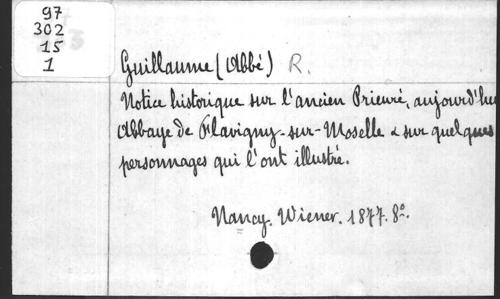 97
302
15
1
Guillaume (Abbé) R.
Notice historique sur l'ancien Prieuré, aujourd'hu
Abbaye de Flavigny-sur-Moselle & sur quelques
personnages qui l'ont illustré.
Nancy. Wiener. 1877. 8º.